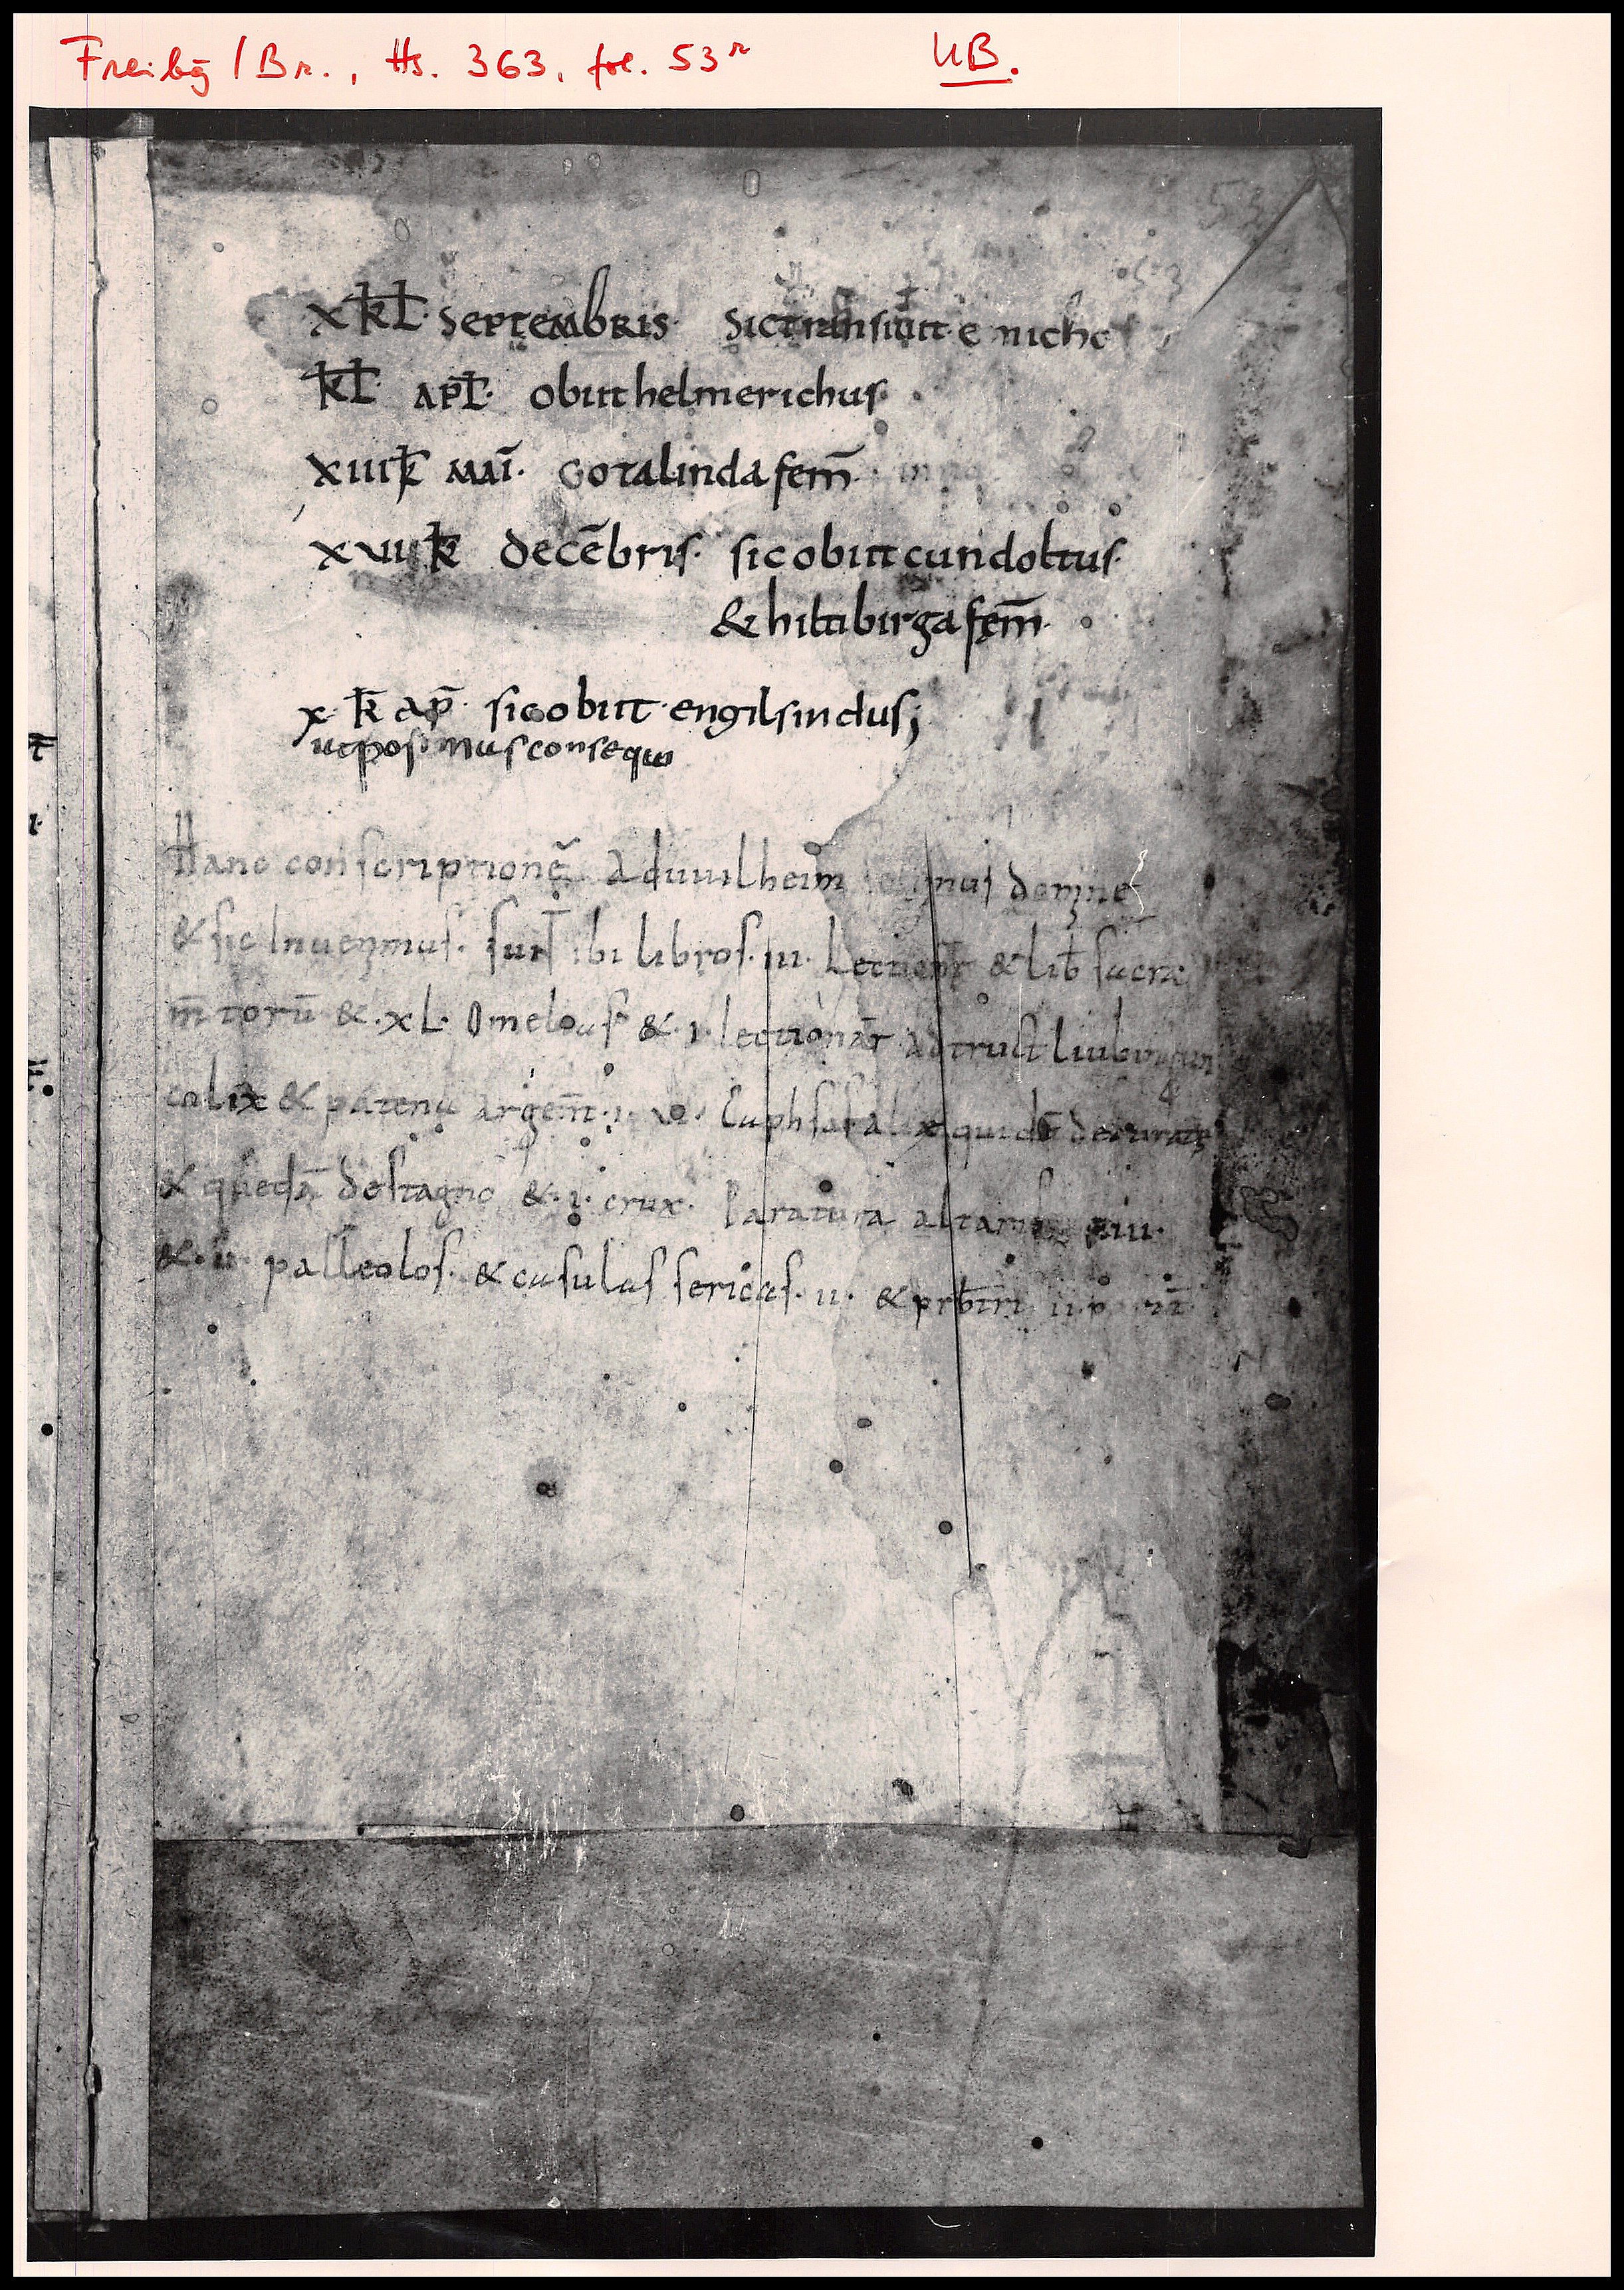 Freibg / Br., Hs. 363, fol. 53r UB.
XKL· Septembris· Sic transiuit e nicho
KL· APL· obiit helmerichus·
XIIIK MAĪ· Gotalinda fem̄·
XVIIK decēbris· sic obiit cundoltus·
& hiltibirga fem̄·
X· K̄ ap̄· sic obiit· engilsindus;
ut possimus consequi
Hanc conscriptionē Aduuilheim domne
& sic Inuenimus· sunt ibi libros· III· & lib sacra
m̄torū & ·XL· Omelias & ·I· lectionar̄
calix & patenā argem̄t·I·
& quedā destagno & ·I· crux· Paratura altaris
& ·II· palleolos· & casulas sericas· II· & prb̄tri